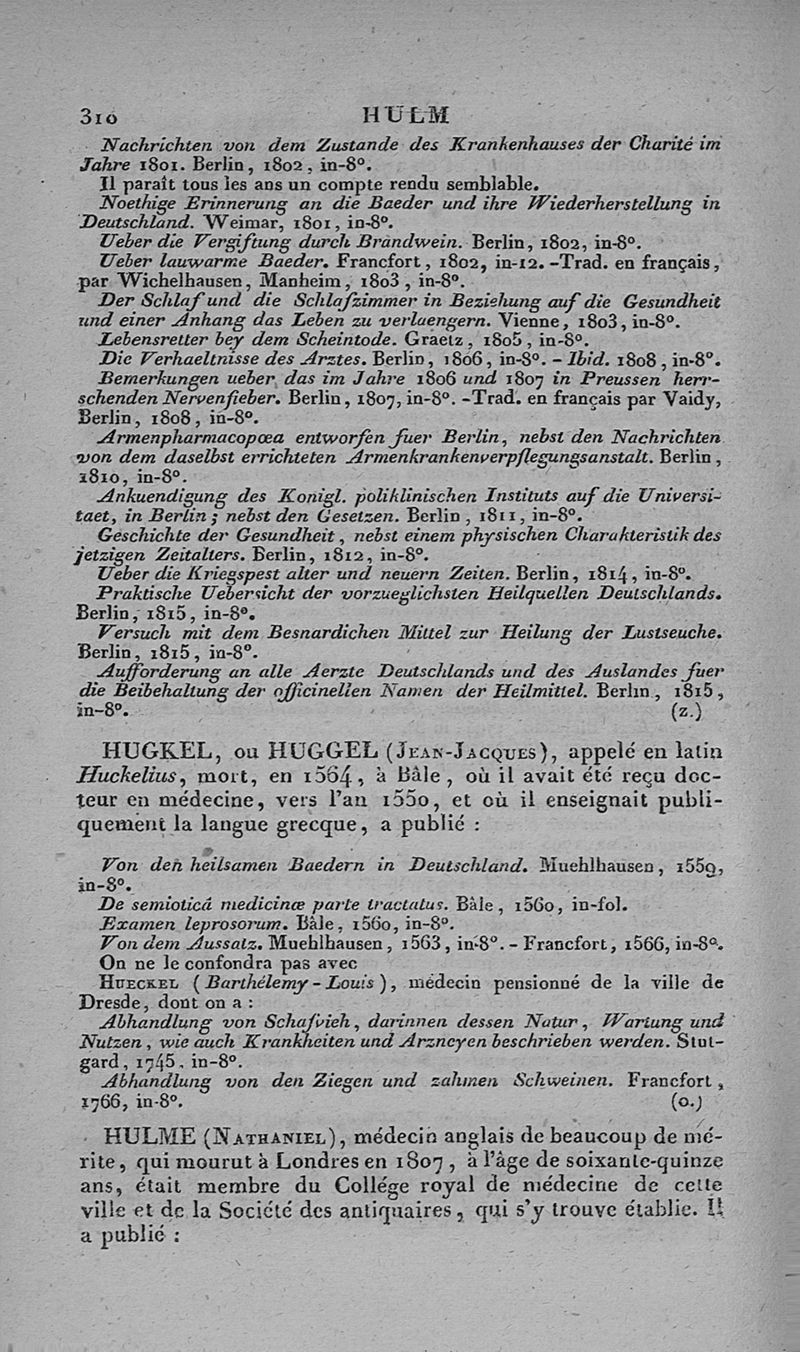 310 HULM
Nachrichten von dem Zustande des Krankenhauses der Charité im
Jahre 1801. Berlin, 1802, in-8°.
Il paraît tous les ans un compte rendu semblable.
Noethige Erinnerung an die Baeder und ihre Wiederherstellung in
Deutschland. Weimar, 1801, in-8°.
Ueber die Vergiftung durch Brandwein. Berlin, 1802, in-8°.
Ueber lauwarme Baeder. Francfort, 1802, in-12. - Trad. en français,
par Wichelhausen, Manheim, 1803, in-8°.
Der Schlaf und die Schlafzimmer in Beziehung auf die Gesundheit
und einer Anhang das Leben zu verlaengern. Vienne, 1803, in-8°.
Lebensretter bey dem Scheintode. Graetz, 1805, in-8°.
Die Verhaeltnisse des Arztes. Berlin, 1806, in-8°. - Ibid. 1808, in-8°.
Bemerkungen ueber das im Jahre 1806 und 1807 in Preussen herr-
schenden Nervenfieber. Berlin, 1807, in-8°. - Trad. en français par Vaidy,
Berlin, 1808, in-8°.
Armenpharmacopœa entworfen fuer Berlin, nebst den Nachrichten
von dem daselbst errichteten Armenkrankenverpflegungsanstalt. Berlin,
1810, in-8°.
Ankuendigung des Konigl. poliklinischen Instituts auf die Universi-
taet, in Berlin; nebst den Gesetzen. Berlin, 1811, in-8°.
Geschichte der Gesundheit, nebst einem physischen Charakteristik des
jetzigen Zeitalters. Berlin, 1812, in-8°.
Ueber die Kriegspest alter und neuern Zeiten. Berlin, 1814, in-8°.
Praktische Uebersicht der vorzueglichsten Heilquellen Deutschlands.
Berlin, 1815, in-8°.
Versuch mit dem Besnardichen Mittel zur Heilung der Lustseuche.
Berlin, 1815, in-8°.
Aufforderung an alle Aerzte Deutschlands und des Auslandes fuer
die Beibehaltung der officinellen Namen der Heilmittel. Berlin, 1815,
in-8°. (z.)
HUGKEL, ou HUGGEL (JEAN-JACQUES), appelé en latin
Huckelius, mort, en 1564, à Bâle, où il avait été reçu doc-
teur en médecine, vers l'an 1550, et où il enseignait publi-
quement la langue grecque, a publié :
Von den heilsamen Baedern in Deutschland. Muehlhausen, 1559,
in-8°.
De semioticâ medicinæ parte tractatus. Bâle, 1560, in-fol.
Examen leprosorum. Bâle, 1560, in-8°.
Von dem Aussatz. Muehlhausen, 1563, in-8°. - Francfort, 1566, in-8°.
On ne le confondra pas avec
HUECKEL (Barthélemy-Louis), médecin pensionné de la ville de
Dresde, dont on a :
Abhandlung von Schafvieh, darinnen dessen Natur, Wartung und
Nutzen, wie auch Krankheiten und Arzneyen beschrieben werden. Stut-
gard, 1745, in-8°.
Abhandlung von den Ziegen und zahmen Schweinen. Francfort,
1766, in-8°. (o.)
HULME (NATHANIEL), médecin anglais de beaucoup de mé-
rite, qui mourut à Londres en 1807, à l'âge de soixante-quinze
ans, était membre du Collége royal de médecine de cette
ville et de la Société des antiquaires, qui s'y trouve établie. Il
a publié :